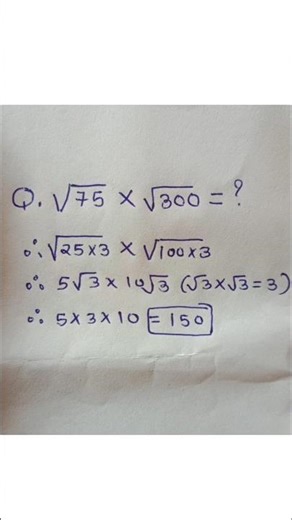 Q. √75 × √300 = ?
∴ √25×3 × √100×3
∴ 5√3 × 10√3 (√3×√3=3)
∴ 5×3×10 = 150